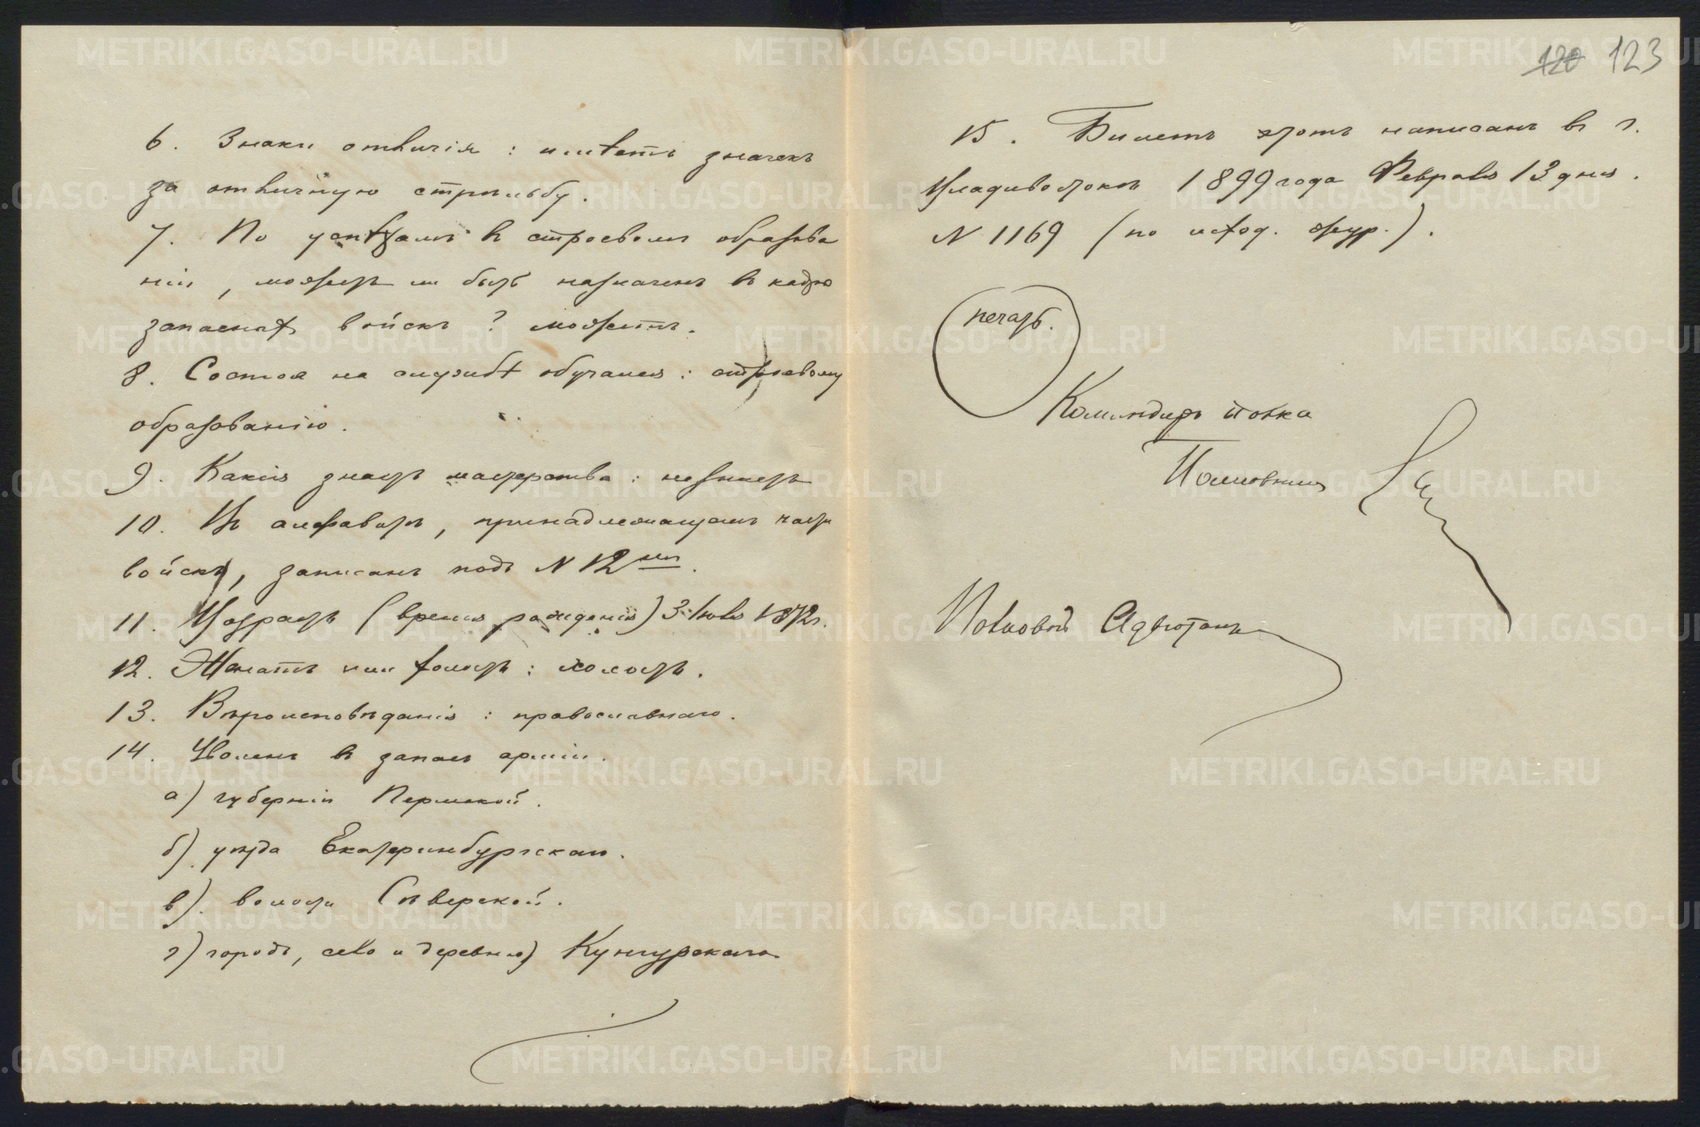 120 123
6. Знаки отличія: имѣетъ значекъ
за отличную стрѣльбу.
7. По успѣхамъ въ строевомъ образова
ніи, можетъ ли быть назначенъ въ кадръ
запасныхъ войскъ? можетъ.
8. Состоя на службѣ обучался: строевому
образованію.
9. Какія знаетъ мастерства: не знаетъ
10. Въ алфавитѣ, принадлежащемъ части
войскъ, записанъ подъ № 12
11. Возрастъ (время рожденія) 3 Іюля 1872 г.
12. Женатъ или холостъ: холостъ.
13. Вѣроисповѣданія: православнаго.
14. Уволенъ въ запасъ арміи.
а) губерніи Пермской.
б) уѣзда Екатеринбургскаго.
в) волости Сѣверской.
г) городъ, село и деревню) Кунгурскаго
15. Билетъ этотъ написанъ въ г.
Владивостокѣ 1899 года Февраля 13 дня.
№ 1169 (по исход. жур.).
печать.
Командиръ полка
Полковникъ
Полковой Адъютантъ
METRIKI.GASO-URAL.RU